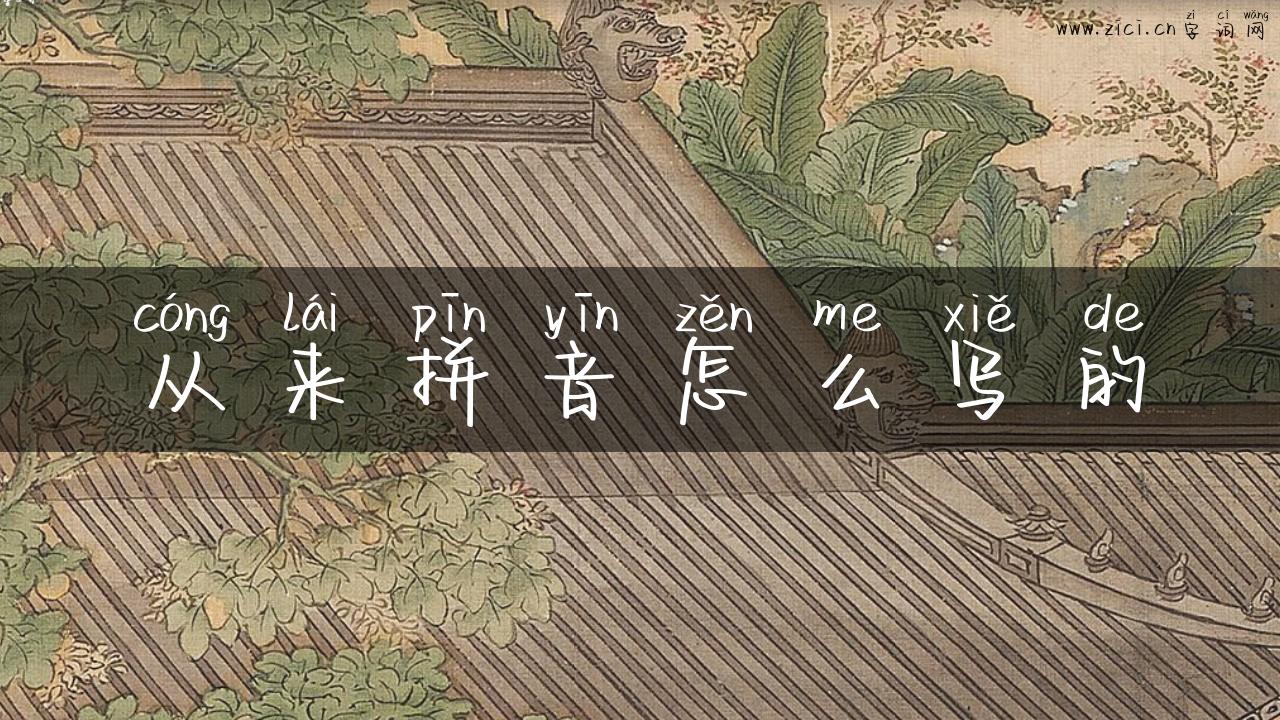 zì cí wǎng
www.zici.cn 字词网
cóng lái pīn yīn zěn me xiě de
从来拼音怎么写的